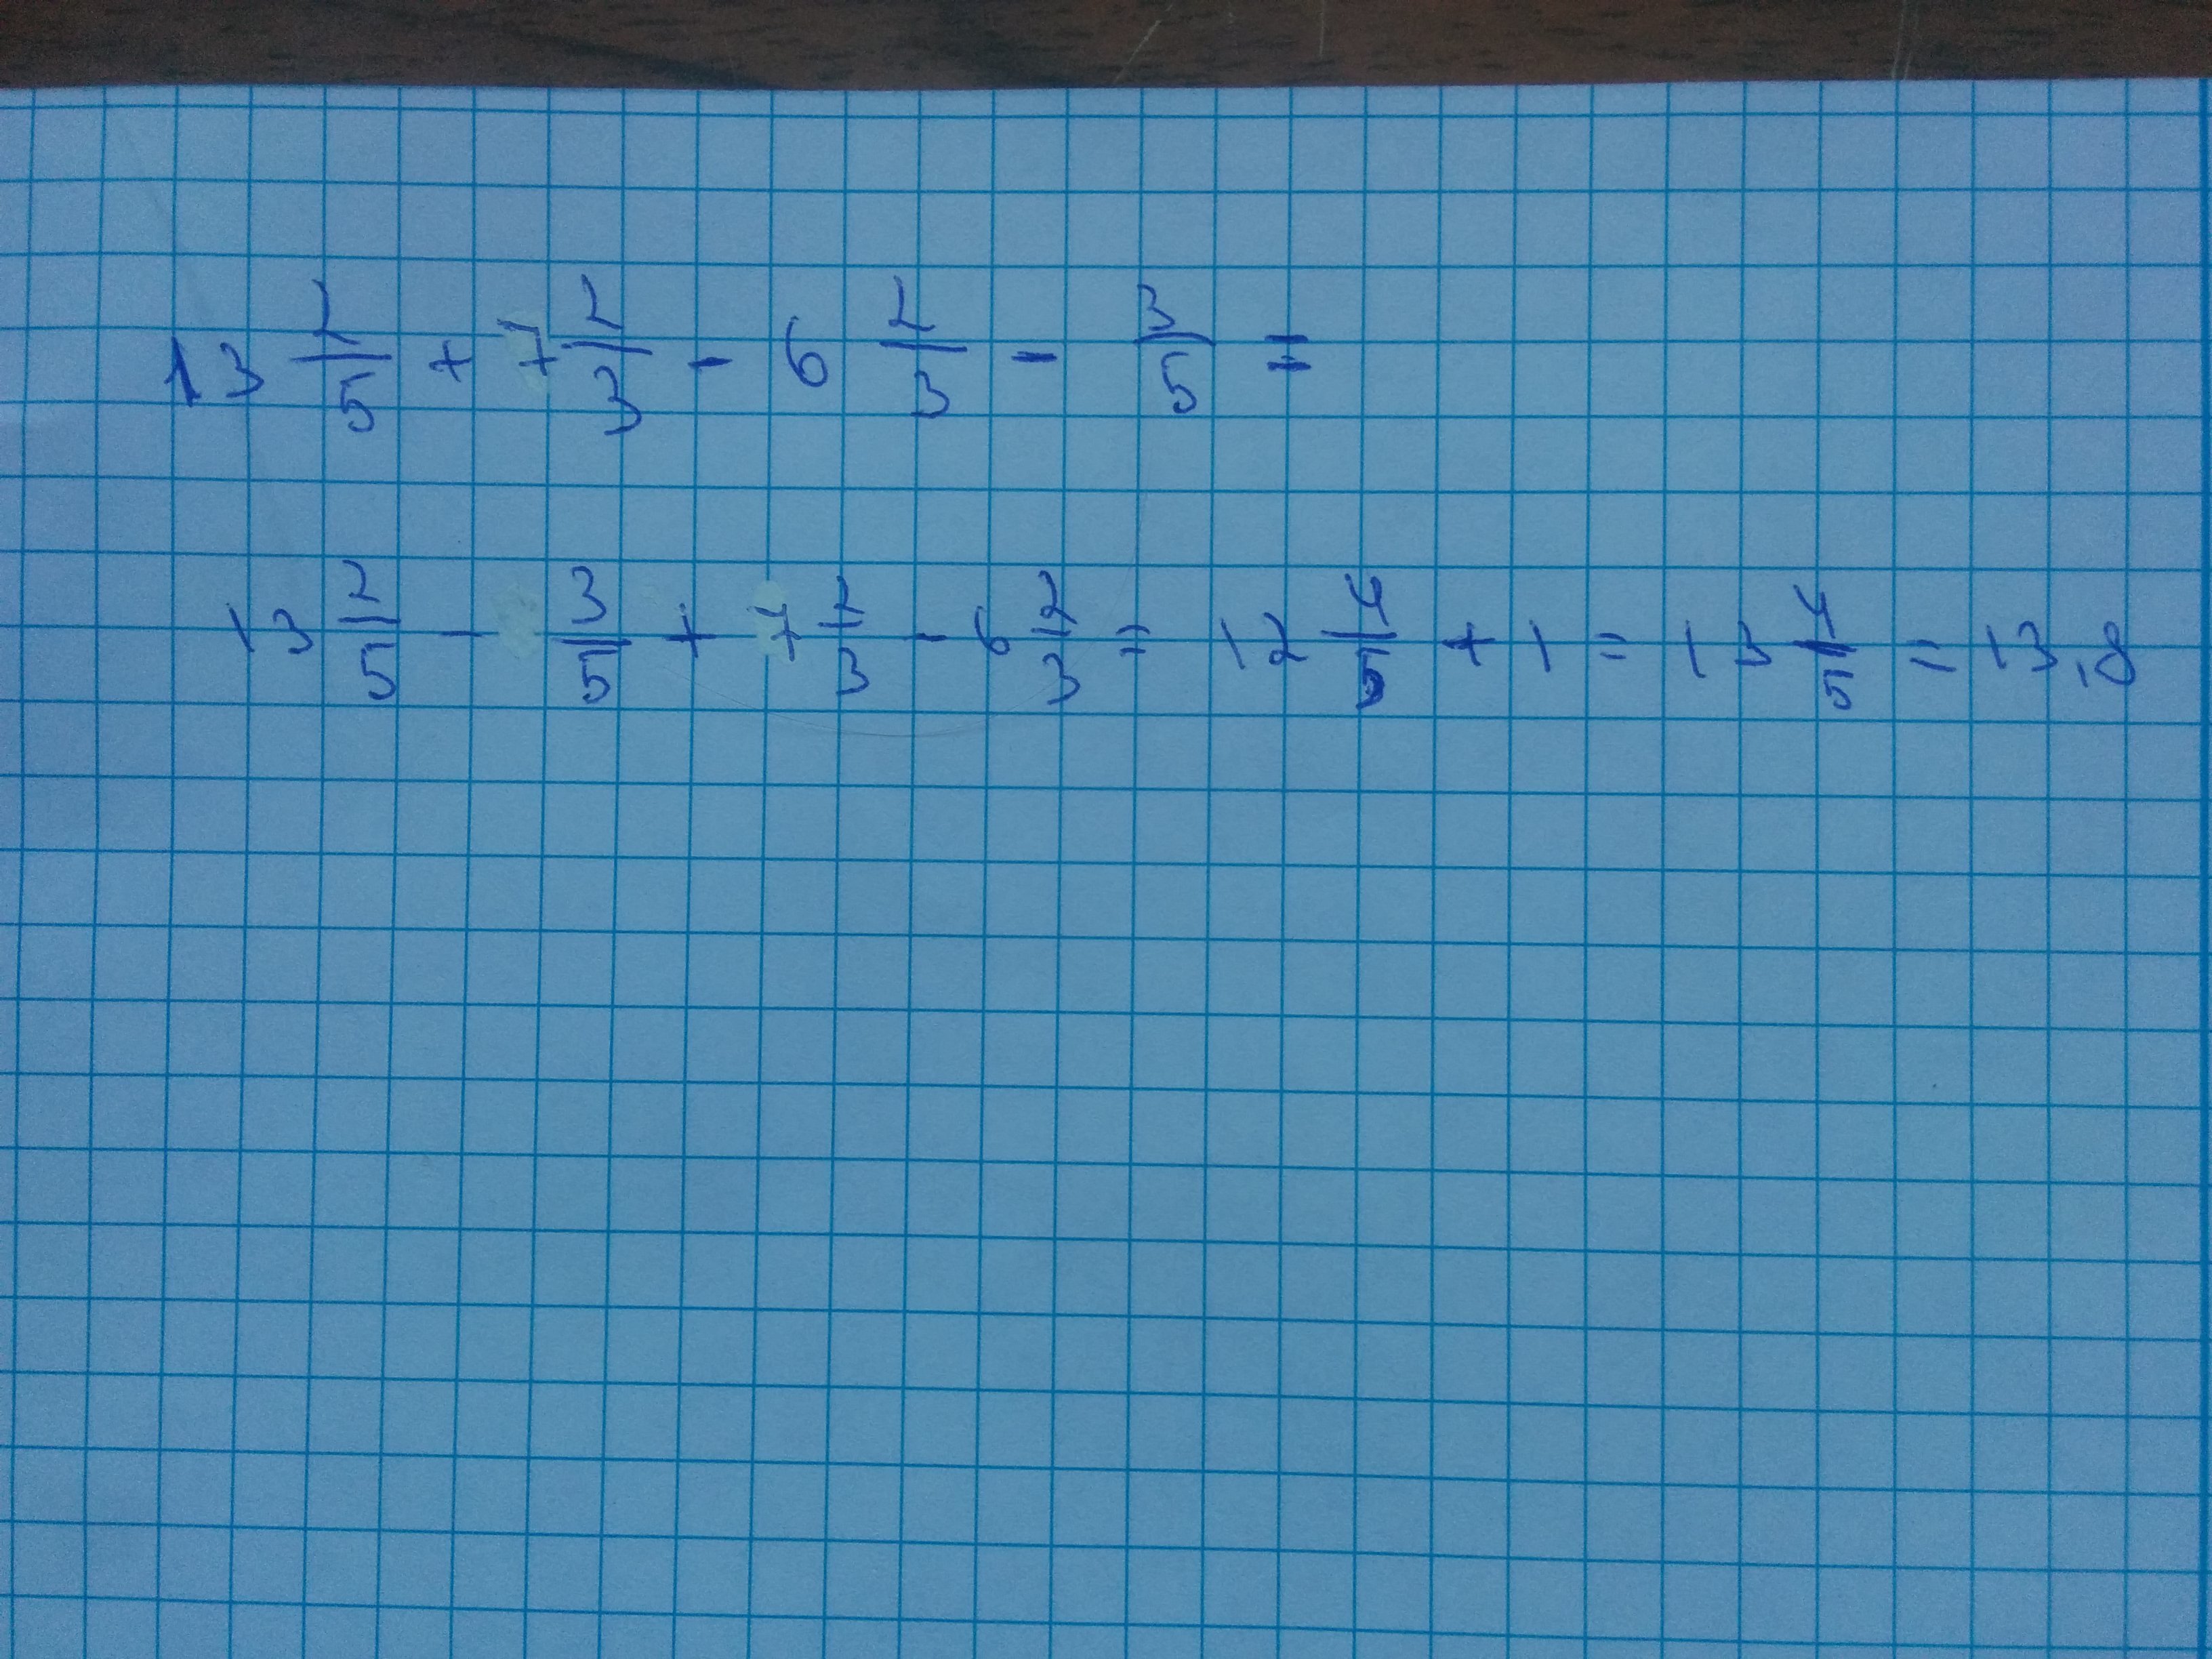 13 2/5 + 7 2/3 - 6 2/3 - 3/5 =
13 2/5 - 3/5 + 7 2/3 - 6 2/3 = 12 4/5 + 1 = 13 4/5 = 13,8